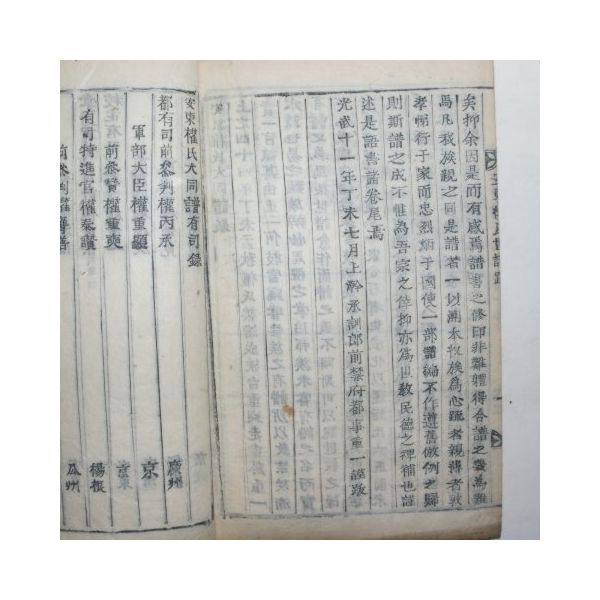 矣抑余因是而有感焉譜書之修印非難體得合譜之義為難
焉凡我族親之同是譜者一以溯本收族為心疏者親薄者敦
孝悌行于家而忠烈炳于國使一部譜編不作遵舊倣例之歸
則斯譜之成不惟為吾宗之倖抑亦為世教民德之裨補也謹
述是語書諸卷尾焉
光武十一年丁未七月上澣承訓郎前禁府都事重一謹跋
安東權氏大同譜有司錄
都有司前叅判權丙承 廣州
軍部大臣權重顯 京
前叅贊權重奭 京
有司特進官權泰 楊根
前叅判權 瓜州